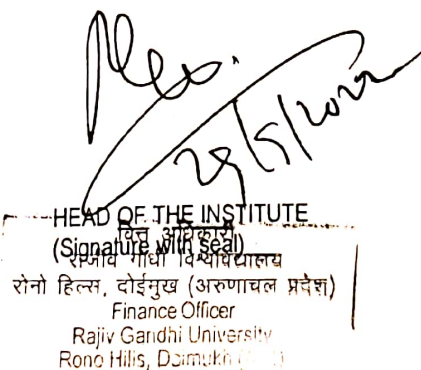 29/5/2022
HEAD OF THE INSTITUTE
वित्त अधिकारी
(Signature with seal)
राजीव गांधी विश्वविद्यालय
रोनो हिल्स, दोईमुख (अरुणाचल प्रदेश)
Finance Officer
Rajiv Gandhi University
Rono Hills, Doimukh